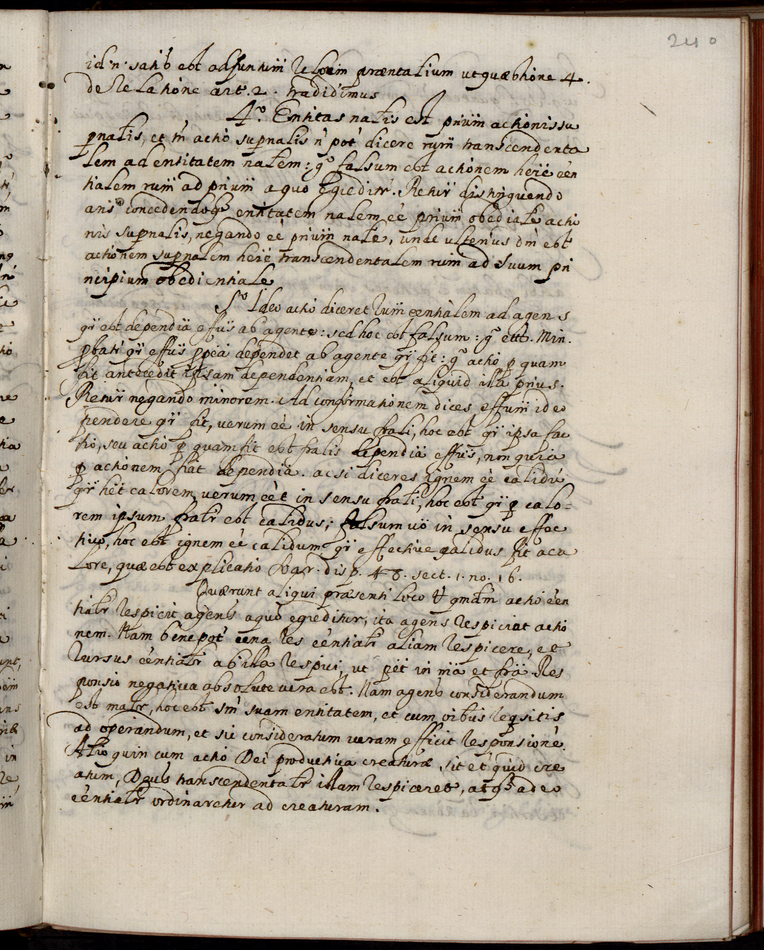 240
id n. satis est ad funtum relōem prædentalium ut quæstione 4.
de Relatione art. 2. tradidimus
4.º Entitas nālis est prium actionis su
pnalis, et tn̄ actio supnalis n̄ pot dicere rum̄ transcendenta
lem ad entitatem nalem: gº falsum est actionem here een
tialem rum̄ ad prium a quo egreditr. Retur distinguendo
ans concedendoqȝ entitatem nalem ee prium obediale actio
nis supnalis, negando ee prium nale, unde ulterius dm̄ est
actionem supnalem here transcendentalem rum ad suum pri
ncipium obedientiale
5.º Ideo actio diceret rum eentialem ad agens
qr̄ est dependia effus ab agente: sed hoc est falsum: gº ett. Min.
pbatr qr̄ effus ppea dependet ab agente qr̄ fit: gº actio p quam
fit antecedit ipsam dependentiam, et est aliquid illa prius.
Retur negando minorem. Ad confirmationem dices effum ideo
pendere qr̄ fit, verum ee in sensu frali, hoc est qr̄ ipsa fac
tio, seu actio p quam fit est fralis dependia effus, non quia
p actionem fiat dependia. ac si diceres ignem ee calidū
qr̄ het calorem, verum eet in sensu frali, hoc est qr̄ p calo-
rem ipsum fralr est calidus; falsum vō in sensu effec
tivo, hoc est ignem ee calidum, qr̄ effective calidus fit a ca
lore, quæ est explicatio Soar. disp. 48. sect. 1. no. 16.
Quærunt aliqui præsenti loco ut qmdm̄ actio een
tialr respicit agens a quo egreditur, ita agens respiciat actio
nem. Nam bene pot una res eentialr aliam respicere, et
rursus eentialr ab illa respici, ut pet in mā et frā. Res
ponsio negativa absolute vera est. Nam agens considerandum
est malr, hoc est sm̄ suam entitatem, et cum oibus reqsitis
ad operandum, et sic consideratum veram efficit responsionē.
Alioquin cum actio Dei productiva creaturæ sit et quid cre
atum, Deus transcendentalr illam respiceret, atqȝ adeo
eentialr ordinaretur ad creaturam.